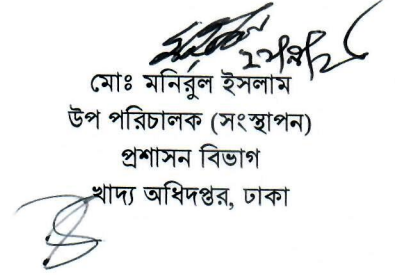 মোঃ মনিরুল ইসলাম
উপ পরিচালক (সংস্থাপন)
প্রশাসন বিভাগ
খাদ্য অধিদপ্তর, ঢাকা